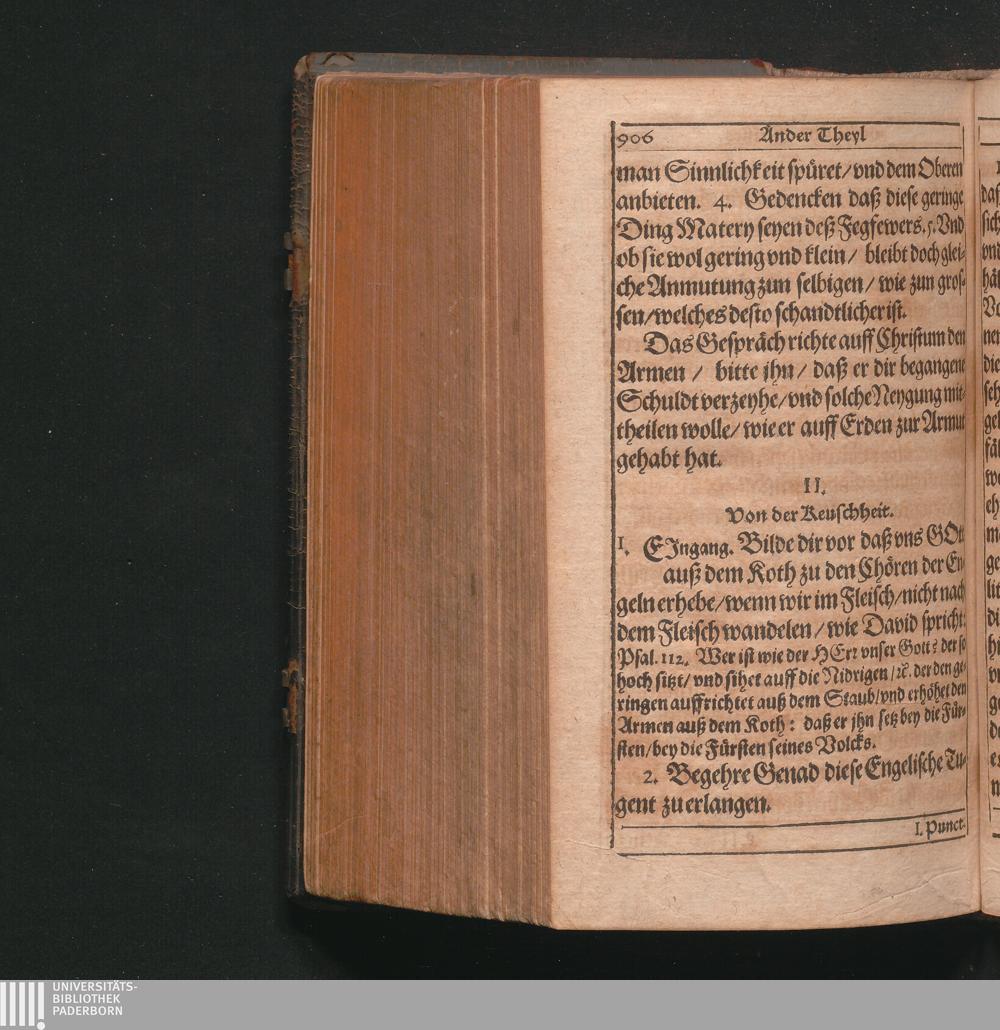 906 Ander Theyl
man Sinnlichkeit spüret/vnd dem Oberen
anbieten. 4. Gedencken daß diese geringe
Ding Matery seyen deß Fegfewers. 5. Vnd
ob sie wol gering vnd klein/ bleibt doch glei-
che Anmutung zun selbigen/ wie zun gros-
sen/welches desto schandtlicher ist.
Das Gespräch richte auff Christum den
Armen / bitte jhn/ daß er dir begangene
Schuldt verzeyhe/vnd solche Neygung mit-
theilen wolle/ wie er auff Erden zur Armut
gehabt hat.
II.
Von der Keuschheit.
1. EJngang. Bilde dir vor daß vns GOtt
auß dem Koth zu den Chören der En-
geln erhebe/wenn wir im Fleisch/nicht nach
dem Fleisch wandelen/wie David spricht:
Psal. 112. Wer ist wie der HErr vnser Gott? der so
hoch sitzt/ vnd sihet auff die Nidrigen/ ꝛc. der den ge-
ringen auffrichtet auß dem Staub/vnd erhöhet den
Armen auß dem Koth: daß er jhn setz bey die Für-
sten/bey die Fürsten seines Volcks.
2. Begehre Genad diese Engelische Tu-
gent zu erlangen.
I. Punct.
UNIVERSITÄTS-
BIBLIOTHEK
PADERBORN